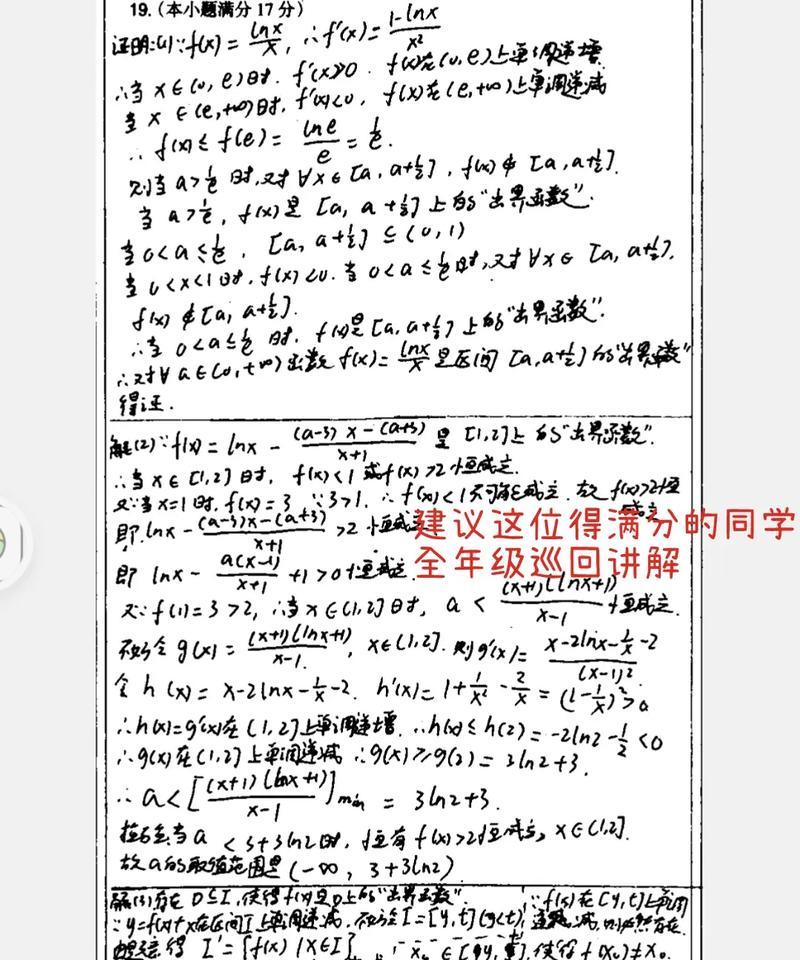 19.（本小题满分 17 分）
证明:(1)∵f(x) = lnx/x, ∴f'(x) = (1-lnx)/x²
∴当 x∈(0, e)时. f'(x)>0. f(x)在(0,e)上单调递增
当 x∈(e,+∞)时. f'(x)<0, f(x)在(e,+∞)上单调递减
∴ f(x) ≤ f(e) = lne/e = 1/e.
则当 a>1/e 时,又对 ∀x∈[a, a+1/2], f(x)∉[a, a+1/2].
当 a>1/e, f(x)是 [a, a+1/2] 上的"出界函数".
当 0<a≤1/e, [a, a+1/2] ⊆ (0,1)
当 0<x<1时, f(x)<0. 当 0<a≤1/e时,又对 ∀x∈ [a, a+1/2],
f(x)∉[a, a+1/2].
∴当 0<a≤1/e 时, f(x)是[a, a+1/2]上的"出界函数".
∴对∀a∈(0,+∞)函数 f(x) = lnx/x 是区间 [a,a+1/2]的"出界函数"
得证.
解(2)∵f(x) = lnx - ((a-3)x-(a+3))/(x+1) 是 [1,2]上的"出界函数".
∴当 x∈[1,2]时, f(x)<1 或f(x)>2恒成立.
又∵当 x=1时, f(x)=3 ∵3>1, ∴f(x)<1不可能成立. 故 f(x)>2恒成立
即 lnx - ((a-3)x-(a+3))/(x+1) >2 恒成立
建议这位得满分的同学
全年级巡回讲解
即 lnx - a(x-1)/(x+1) +1>0恒成立.
又∵f(1)=3>2, ∴当 x∈(1,2]时, a < (x+1)(lnx+1)/(x-1) 恒成立.
不妨令 g(x) = (x+1)(lnx+1)/(x-1), x∈(1,2]. 则g'(x) = (x-2lnx-1/x-2)/(x-1)²
令 h(x) = x-2lnx-1/x-2. h'(x) = 1+1/x²-2/x = (1-1/x)²>0
∴h(x)=g'(x)在(1,2]上单调递增. ∴h(x)≤h(2) = -2ln2-1/2<0
∴g(x)在(1,2]上单调递减 ∴g(x)≥g(2) = 3ln2+3.
∴ a < [(x+1)(lnx+1)/(x-1)]min = 3ln2+3.
当a<3+3ln2时, 恒有 f(x)>2恒成立, x∈(1,2].
故a的取值范围是(-∞, 3+3ln2)
解(3)存在 D⊆I, 使得f(x)是D上的"出界函数".
∵y=f(x)+x在区间I上单调递减, 不妨令I=[y,t](y<t),
∵f(x)在[y,t]上
I'={f(x)|x∈I}
使得 f(x₀)≠x₀.